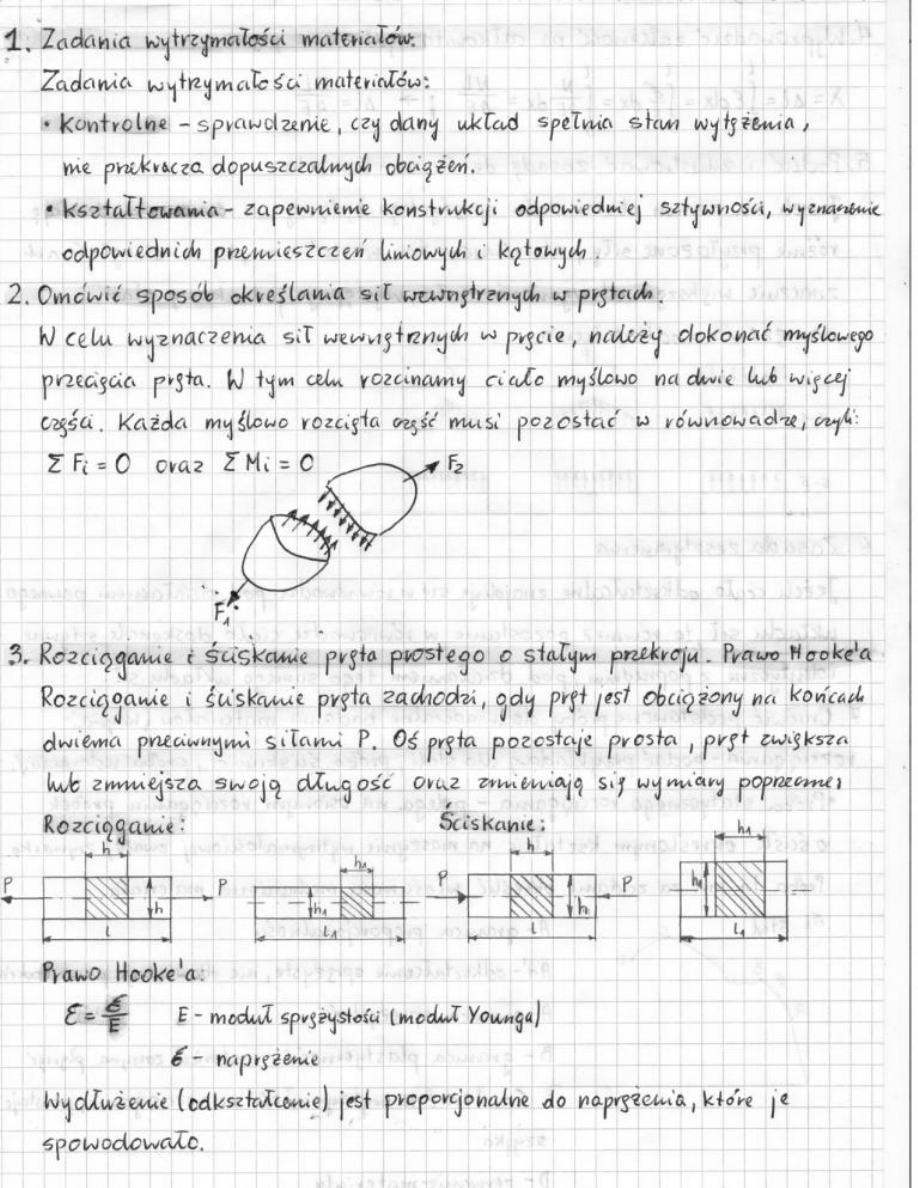 1. Zadania wytrzymałości materiałów.
Zadania wytrzymałości materiałów:
• Kontrolne - sprawdzenie, czy dany układ spełnia stan wytężenia,
nie przekracza dopuszczalnych obciążeń.
• kształtowania - zapewnienie konstrukcji odpowiedniej sztywności, wyznaczenie
odpowiednich przemieszczeń liniowych i kątowych.
2. Omówić sposób określania sił wewnętrznych w prętach.
W celu wyznaczenia sił wewnętrznych w pręcie, należy dokonać myślowego
przecięcia pręta. W tym celu rozcinamy ciało myślowo na dwie lub więcej
części. Każda myślowo rozcięta część musi pozostać w równowadze, czyli:
Σ Fi = 0 oraz Σ Mi = 0
F2
F1
3. Rozciąganie i ściskanie pręta prostego o stałym przekroju. Prawo Hooke'a
Rozciąganie i ściskanie pręta zachodzi, gdy pręt jest obciążony na końcach
dwiema przeciwnymi siłami P. Oś pręta pozostaje prosta, pręt zwiększa
lub zmniejsza swoją długość oraz zmieniają się wymiary poprzeczne:
Rozciąganie: Ściskanie:
h h1 h h1
P P P P
h h1 h h1
l l1 l l1
Prawo Hooke'a:
ε = σ/E E - moduł sprężystości (moduł Younga)
σ - naprężenie
Wydłużenie (odkształcenie) jest proporcjonalne do naprężenia, które je
spowodowało.